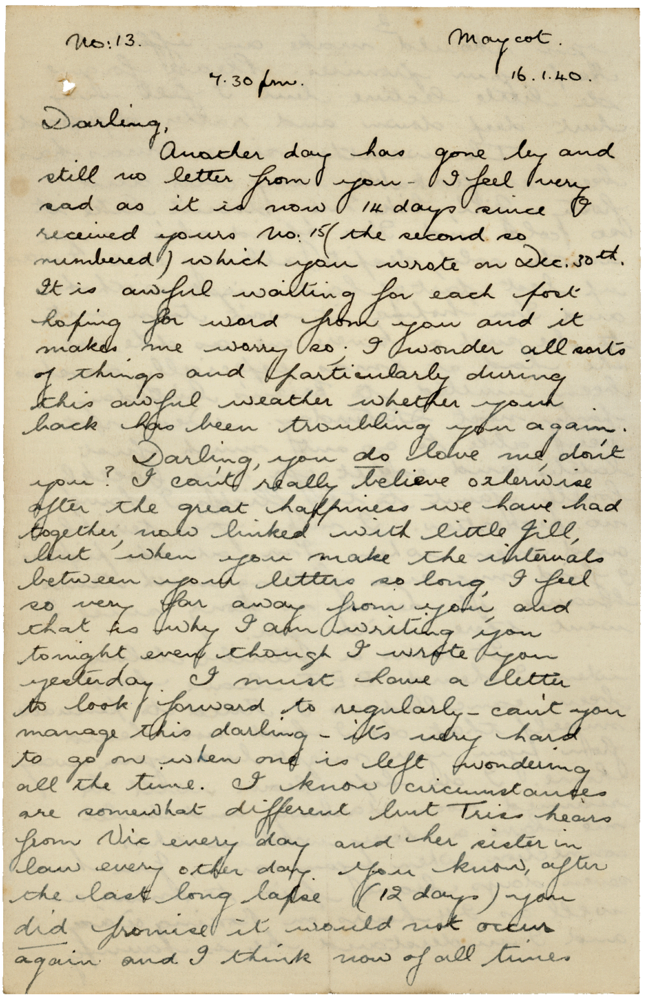 No: 13. Maycot.
7.30 pm. 16.1.40.
Darling,
Another day has gone by and
still no letter from you - I feel very
sad as it is now 14 days since I
received yours No. 15 (the second so
numbered) which you wrote on Dec. 30th.
It is awful waiting for each post
hoping for word from you and it
makes me worry so; I wonder all sorts
of things and particularly during
this awful weather whether your
back has been troubling you again.
Darling, you do love me, don't
you? I can't really believe otherwise
after the great happiness we have had
together, now linked with little Jill,
but when you make the intervals
between your letters so long, I feel
so very far away from you, and
that is why I am writing you
tonight even though I wrote you
yesterday. I must have a letter
to look forward to regularly - can't you
manage this darling - it's very hard
to go on when one is left wondering
all the time. I know circumstances
are somewhat different but Triss hears
from Vic every day and her sister in
law every other day. You know, after
the last long lapse (12 days) you
did promise it would not occur
again and I think now of all times